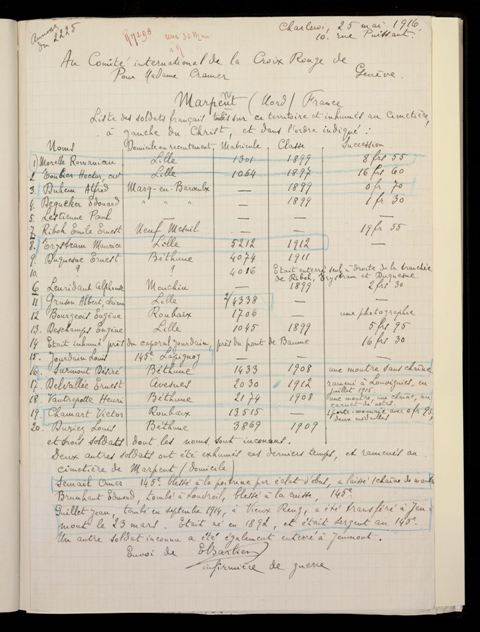 Annexe
du 2225
Charleroi, 25 mai 1916
10. rue Puissant.
Au Comité international de la Croix Rouge de
Genève.
Pour Madame Cramer
Marpent (Nord) France
Liste des soldats français tués sur ce territoire et inhumés au cimetière,
à gauche du Christ, et dans l'ordre indiqué :
Noms Domicile ou recrutement Matricule Classe Succession
1) Morelle Romanian Lille 1301 1899 8 frs 55
2 Hector, cult Lille 1064 1897 16 frs 60
3. Duhem Alfred Marq-en-Baroeulx — 1899 0 fr 70
4. Dequeker Edouard " " " — 1899 1 fr 30
5. Lestienne Paul — — —
7. Riboh Emile Ernest Neuf Mesnil — 17 fr 55
8. Erzstram Maurice Lille 5212 1912 —
9. Duquesne Ernest Béthune 4074 1911
10. " " 4016 Etait enterré seul à droite de la tranchée
de Riboh, Erzstram et Duquesne
6 Leuridant Alphonse Mouchin — 1899 2 frs 30
11 Gruson Albert, Lille 4338 — —
12. Bourgeois Eugène Roubaix 1706 — une photographie
13. Deschamps Eugène Lille 1045 1899 5 frs 75
14 Etait inhumé près du caporal Jourdain, près du pont de Baume 16 frs 30
15. Jourdain Louis 145e Lapugnoy — —
16. Sarmont Désiré Béthune 1433 1908 une montre sans chaîne
17. Delvallée Ernest Avesnes 2030 1912 ramené à Louvignies, en
juillet 1915.
18 Vantrepotte Henri Béthune 2174 1908 une montre, une chaîne, un
19. Chamart Victor Roubaix 13515 — 1 porte-monnaie avec 0 fr 95,
deux médailles
20. Buriez Louis Béthune 3869 1909
et trois soldats dont les noms sont inconnus.
Deux autres soldats ont été exhumés ces derniers temps, et ramenés au
cimetière de Marpent (domicile)
Semail Omer 145e blessé à la poitrine par éclat d'obus, a laissé 1 chaîne de montre
Brunhant Edmond, tombé à Landrois, blessé à la cuisse, 145e.
Guillet Jean, tombé en septembre 1914, à Vieux Reng, a été transféré à Jeu-
mont le 23 mars. Etait né en 1892, et était sergent au 145e.
Un autre soldat inconnu a été également enterré à Jeumont.
Envoi de
infirmière de guerre